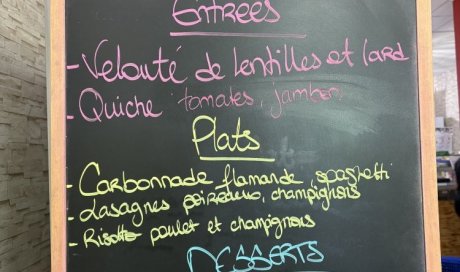 Entrées
- Velouté de lentilles et lard
- Quiche tomates, jambon
Plats
- Carbonnade flamande spaghetti
- Lasagnes poireaux, champignons
- Risotto poulet et champignons
DESSERTS